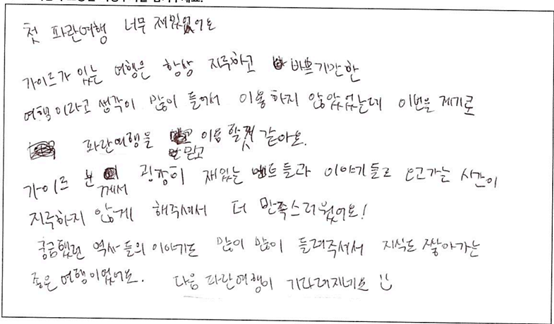 첫 파란여행 너무 재밌었어요
가이드가 있는 여행은 항상 지루하고 바쁘기만한
여행이라고 생각이 많이 들어서 이용하지 않았었는데 이번을 계기로
파란여행을 만 믿고 이용할 것 같아요.
가이드 분께서 굉장히 재밌는 멘트들과 이야기들로 오고가는 시간이
지루하지 않게 해주셔서 더 만족스러웠어요!
궁금했던 역사들의 이야기도 많이 많이 들려주셔서 지식도 쌓아가는
좋은 여행이었어요. 다음 파란여행이 기다려지네요